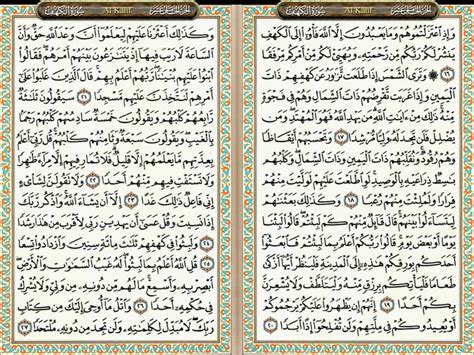 سورة الكهف
Al Kahf
الجزء الخامس عشر
وَإِذِ اعْتَزَلْتُمُوهُمْ وَمَا يَعْبُدُونَ إِلَّا اللَّهَ فَأْوُوا إِلَى الْكَهْفِ
يَنشُرْ لَكُمْ رَبُّكُم مِّن رَّحْمَتِهِ وَيُهَيِّئْ لَكُم مِّنْ أَمْرِكُم مِّرْفَقًا
١٦ وَتَرَى الشَّمْسَ إِذَا طَلَعَت تَّزَاوَرُ عَن كَهْفِهِمْ ذَاتَ
الْيَمِينِ وَإِذَا غَرَبَت تَّقْرِضُهُمْ ذَاتَ الشِّمَالِ وَهُمْ فِي فَجْوَةٍ
مِّنْهُ ذَٰلِكَ مِنْ آيَاتِ اللَّهِ مَن يَهْدِ اللَّهُ فَهُوَ الْمُهْتَدِ وَمَن
يُضْلِلْ فَلَن تَجِدَ لَهُ وَلِيًّا مُّرْشِدًا ١٧ وَتَحْسَبُهُمْ أَيْقَاظًا
وَهُمْ رُقُودٌ وَنُقَلِّبُهُمْ ذَاتَ الْيَمِينِ وَذَاتَ الشِّمَالِ وَكَلْبُهُم
بَاسِطٌ ذِرَاعَيْهِ بِالْوَصِيدِ لَوِ اطَّلَعْتَ عَلَيْهِمْ لَوَلَّيْتَ مِنْهُمْ
فِرَارًا وَلَمُلِئْتَ مِنْهُمْ رُعْبًا ١٨ وَكَذَٰلِكَ بَعَثْنَاهُمْ
لِيَتَسَاءَلُوا بَيْنَهُمْ قَالَ قَائِلٌ مِّنْهُمْ كَمْ لَبِثْتُمْ قَالُوا لَبِثْنَا
يَوْمًا أَوْ بَعْضَ يَوْمٍ قَالُوا رَبُّكُمْ أَعْلَمُ بِمَا لَبِثْتُمْ فَابْعَثُوا
أَحَدَكُم بِوَرِقِكُمْ هَٰذِهِ إِلَى الْمَدِينَةِ فَلْيَنظُرْ أَيُّهَا أَزْكَىٰ
طَعَامًا فَلْيَأْتِكُم بِرِزْقٍ مِّنْهُ وَلْيَتَلَطَّفْ وَلَا يُشْعِرَنَّ
بِكُمْ أَحَدًا ١٩ إِنَّهُمْ إِن يَظْهَرُوا عَلَيْكُمْ يَرْجُمُوكُمْ
أَوْ يُعِيدُوكُمْ فِي مِلَّتِهِمْ وَلَن تُفْلِحُوا إِذًا أَبَدًا ٢٠
سورة الكهف
Al Kahf
الجزء الخامس عشر
وَكَذَٰلِكَ أَعْثَرْنَا عَلَيْهِمْ لِيَعْلَمُوا أَنَّ وَعْدَ اللَّهِ حَقٌّ وَأَنَّ
السَّاعَةَ لَا رَيْبَ فِيهَا إِذْ يَتَنَازَعُونَ بَيْنَهُمْ أَمْرَهُمْ فَقَالُوا
ابْنُوا عَلَيْهِم بُنْيَانًا رَّبُّهُمْ أَعْلَمُ بِهِمْ قَالَ الَّذِينَ غَلَبُوا عَلَىٰ
أَمْرِهِمْ لَنَتَّخِذَنَّ عَلَيْهِم مَّسْجِدًا ٢١ سَيَقُولُونَ ثَلَاثَةٌ
رَّابِعُهُمْ كَلْبُهُمْ وَيَقُولُونَ خَمْسَةٌ سَادِسُهُمْ كَلْبُهُمْ رَجْمًا
بِالْغَيْبِ وَيَقُولُونَ سَبْعَةٌ وَثَامِنُهُمْ كَلْبُهُمْ قُل رَّبِّي أَعْلَمُ
بِعِدَّتِهِم مَّا يَعْلَمُهُمْ إِلَّا قَلِيلٌ فَلَا تُمَارِ فِيهِمْ إِلَّا مِرَاءً ظَاهِرًا
وَلَا تَسْتَفْتِ فِيهِم مِّنْهُمْ أَحَدًا ٢٢ وَلَا تَقُولَنَّ لِشَيْءٍ
إِنِّي فَاعِلٌ ذَٰلِكَ غَدًا ٢٣ إِلَّا أَن يَشَاءَ اللَّهُ وَاذْكُر رَّبَّكَ
إِذَا نَسِيتَ وَقُلْ عَسَىٰ أَن يَهْدِيَنِ رَبِّي لِأَقْرَبَ مِنْ هَٰذَا رَشَدًا
٢٤ وَلَبِثُوا فِي كَهْفِهِمْ ثَلَاثَ مِائَةٍ سِنِينَ وَازْدَادُوا تِسْعًا
٢٥ قُلِ اللَّهُ أَعْلَمُ بِمَا لَبِثُوا لَهُ غَيْبُ السَّمَاوَاتِ وَالْأَرْضِ
أَبْصِرْ بِهِ وَأَسْمِعْ مَا لَهُم مِّن دُونِهِ مِن وَلِيٍّ وَلَا يُشْرِكُ
فِي حُكْمِهِ أَحَدًا ٢٦ وَاتْلُ مَا أُوحِيَ إِلَيْكَ مِن كِتَابِ
رَبِّكَ لَا مُبَدِّلَ لِكَلِمَاتِهِ وَلَن تَجِدَ مِن دُونِهِ مُلْتَحَدًا ٢٧